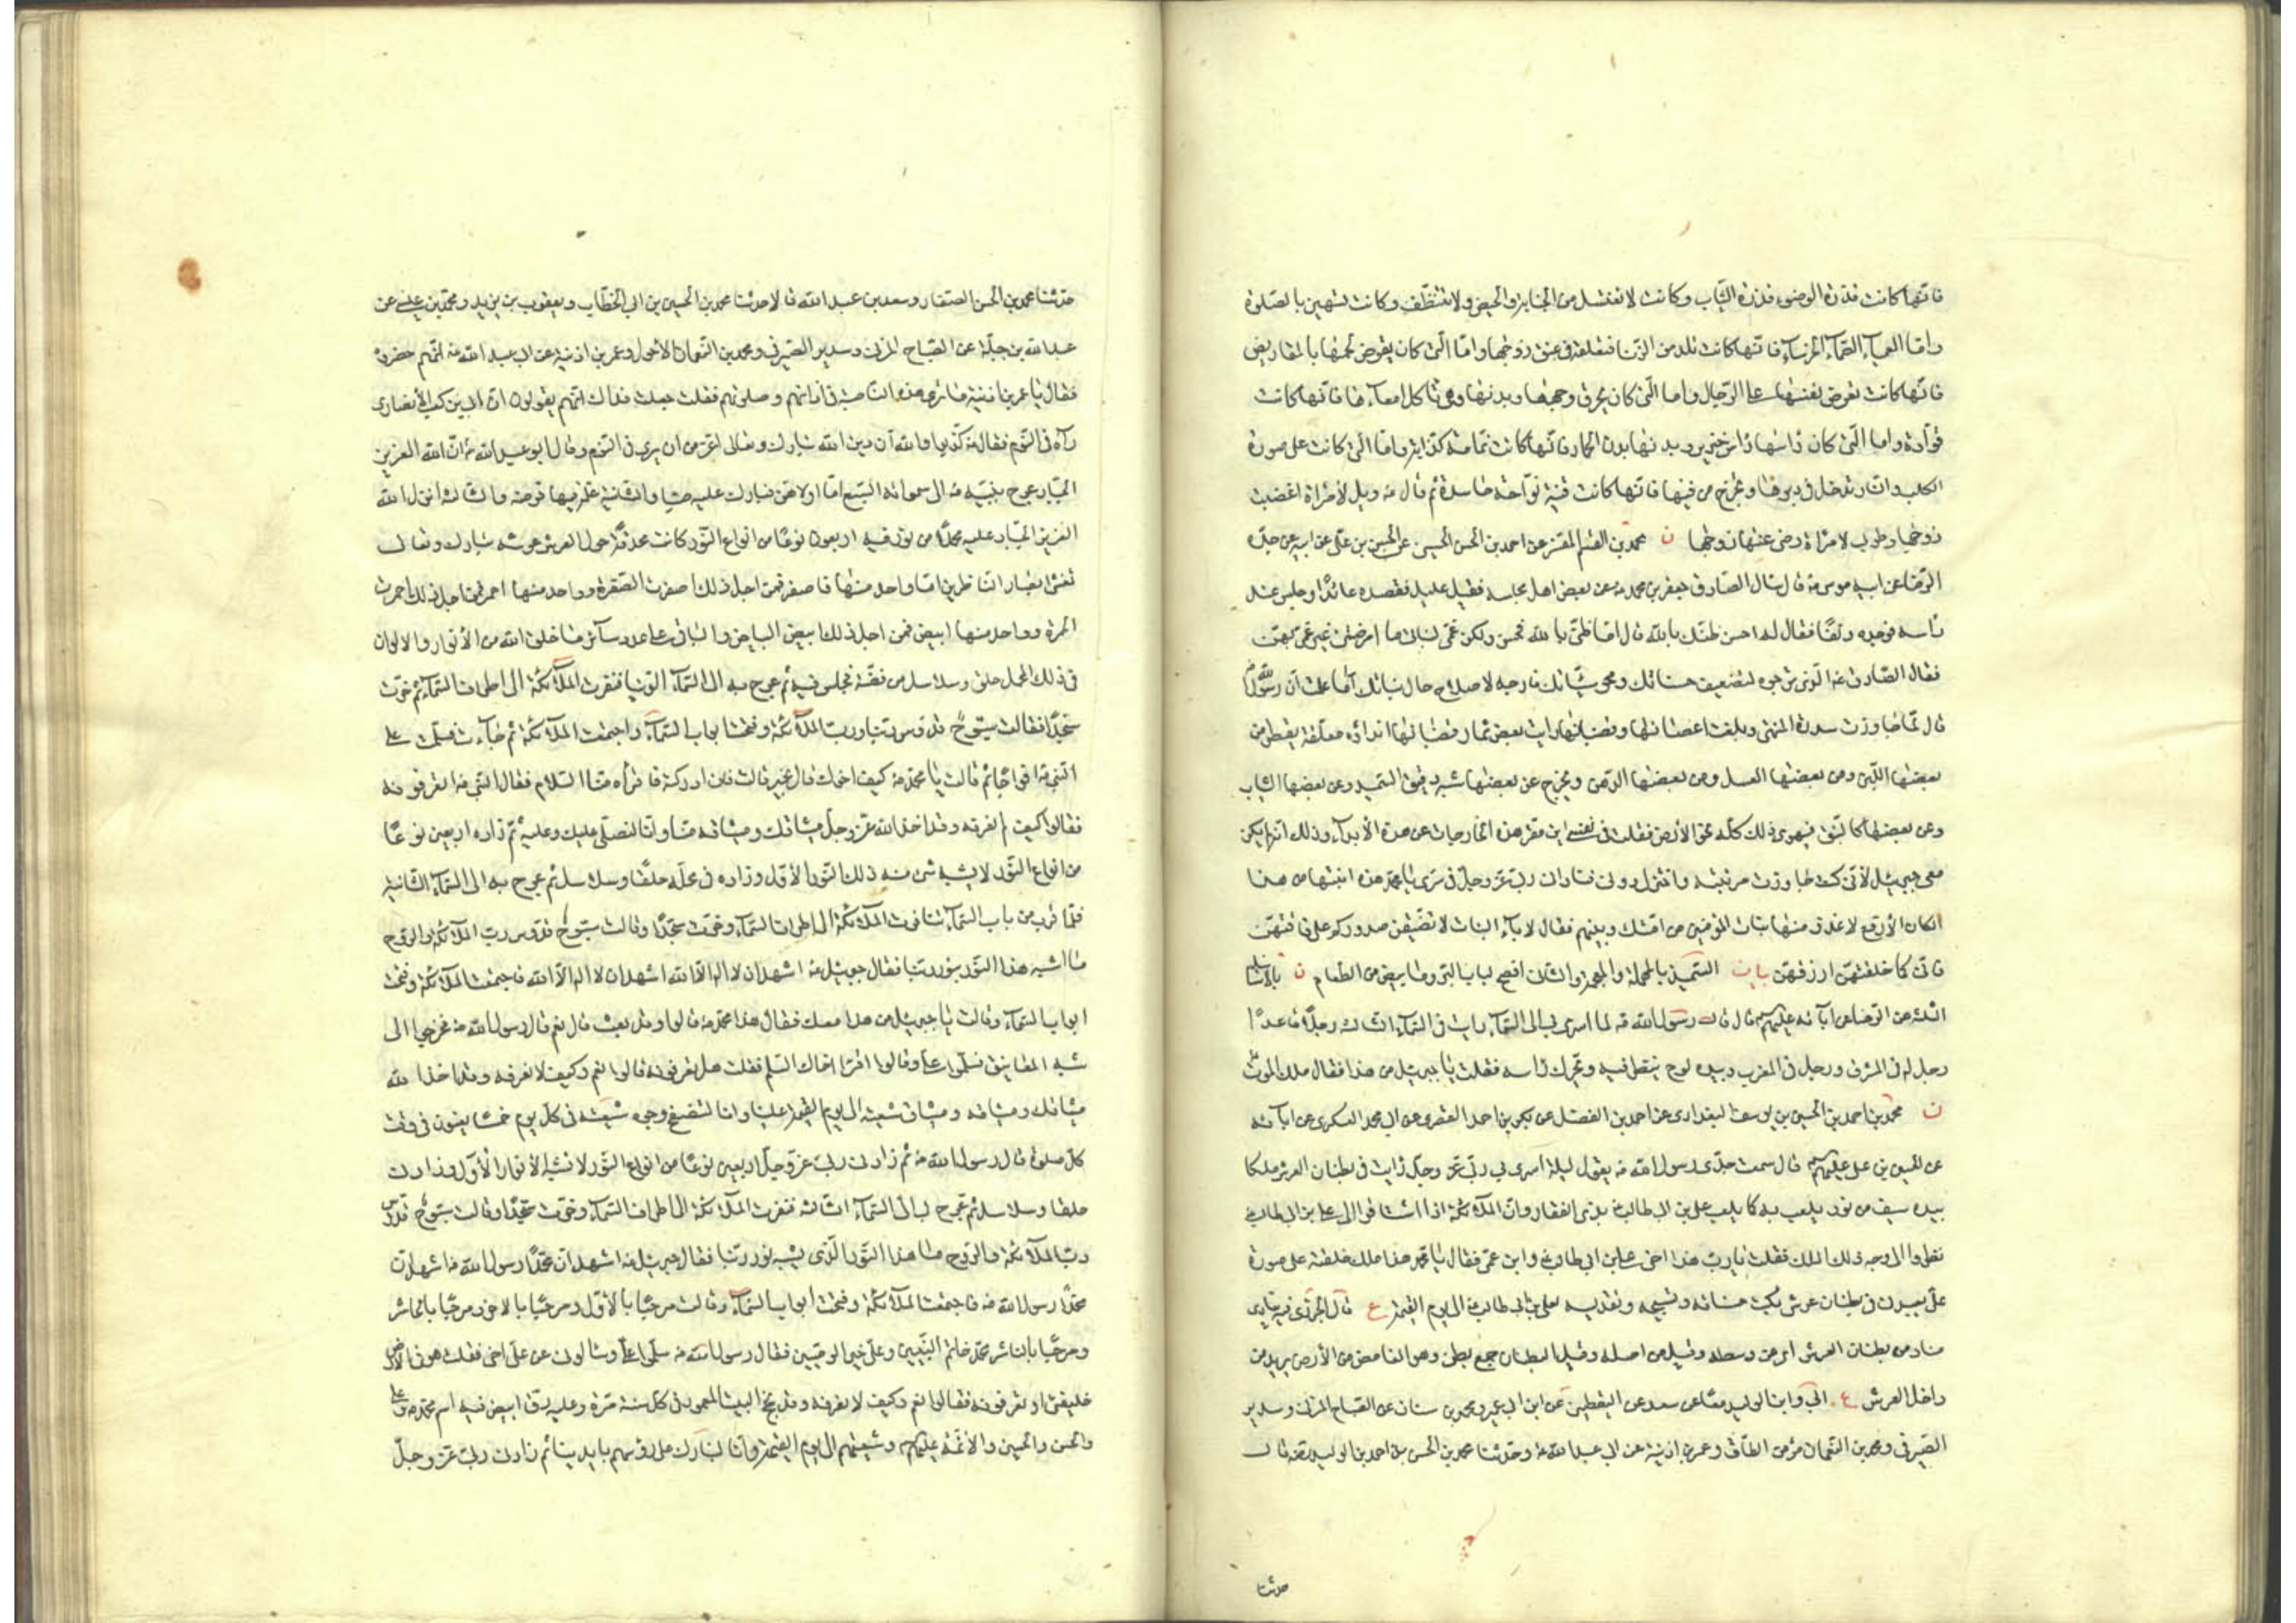 فانها كانت قذرة الوضوء قذرة الثياب وكانت لا تغتسل من الجنابة والحيض ولا تتنظف وكانت تستهين بالصلوة
واما العمياء الصماء الخرساء فانها كانت تلد من الزنا فتعلقه في عنق زوجها واما التي كان يقرض لحمها بالمقاريض
فانها كانت تعرض نفسها على الرجال واما التي كان يحرق وجهها وبدنها وهي تاكل امعاءها فانها كانت
قوادة واما التي كان راسها راس خنزير وبدنها بدن الحمار فانها كانت نمامة كذابة واما التي كانت على صورة
الكلب والنار تدخل في دبرها وتخرج من فيها فانها كانت قينة نواحة حاسدة ثم قال ع ويل لامراة اغضبت
زوجها وطوبى لامراة رضى عنها زوجها ن محمد بن القسم المفسر عن احمد بن الحسن الحسيني عن الحسن بن علي عن ابيه عن جده
الرضا عن ابيه موسى ع قال سال الصادق جعفر بن محمد ع عن بعض اهل مجلسه فقيل عليل فقصده عائدا وجلس عند
راسه فوجده دنفا فقال له احسن ظنك بالله قال اما ظني بالله فحسن ولكن غمي لبناتي ما امرضني غير غمي بهن
فقال الصادق ع الذي ترجوه لتضعيف حسناتك ومحو سيئاتك فارجه لاصلاح حال بناتك اما علمت ان رسول الله ص
قال لما جاوزت سدرة المنتهى وبلغت اغصانها وقضبانها رايت بعض ثمار قضبانها اثداؤه معلقة يقطر من
بعضها اللبن ومن بعضها العسل ومن بعضها الدهن ويخرج عن بعضها شبه دقيق السميد وعن بعضها الثياب
وعن بعضها كالنبق فيهوى ذلك كله نحو الارض فقلت في نفسي اين مقر هذه الخارجات عن هذه الاثداء وذلك انه لم يكن
معي جبرئيل لاني كنت جاوزت مرتبته واختزل دوني فناداني ربي عز وجل في سري يا محمد هذه انبتها من هذا
المكان الارفع لاغذو منها بنات المؤمنين من امتك وبنيهم فقل لاباء البنات لا تضيقن صدوركم على فاقتهن
فاني كما خلقتهن ارزقهن بيان السميذ بالمهملة والمعجمة والثاني افصح لباب البر وما يبيض من الطعام ن بالاسانيد
الثلثة عن الرضا عن آبائه عليهم السلام قال قال رسول الله ص لما اسرى بي الى السماء رايت في السماء الثالثة رجلا قاعدا
رجل له في المشرق ورجل في المغرب وبيده لوح ينظر فيه ويحرك راسه فقلت يا جبرئيل من هذا فقال ملك الموت ع
ن محمد بن احمد بن الحسين بن يوسف البغدادي عن احمد بن الفضل عن بكر بن احمد القصري عن ابي محمد العسكري عن آبائه
عن الحسين بن علي عليهم السلام قال سمعت جدي رسول الله ص يقول ليلة اسرى بي ربي عز وجل رايت في بطنان العرش ملكا
بيده سيف من نور يلعب به كما يلعب علي بن ابي طالب ع بذي الفقار وان الملائكة اذا اشتاقوا الى علي بن ابي طالب ع
نظروا الى وجه ذلك الملك فقلت يا رب هذا اخي علي بن ابي طالب ع وابن عمي فقال يا محمد هذا ملك خلقته على صورة
علي يعبدني في بطنان عرشي يكتب حسناته وتسبيحه وتقديسه لعلي بن ابي طالب ع الى يوم القيمة ع قال الجزري فيه ينادي
مناد من بطنان العرش اي من وسطه وقيل من اصله وقيل البطنان جمع بطن وهو الغامض من الارض يريد من
داخل العرش ع ابي وابن الوليد معا عن سعد عن اليقطيني عن ابن ابي عمير ومحمد بن سنان عن الصباح المزني وسدير
الصيرفي ومحمد بن النعمان مؤمن الطاق وعمر بن اذينة عن ابي عبد الله ع وحدثنا محمد بن الحسن بن احمد بن الوليد رضه قال
حدثنا
حدثنا محمد بن الحسن الصفار وسعد بن عبد الله قالا حدثنا محمد بن الحسين بن ابي الخطاب ويعقوب بن يزيد ومحمد بن عيسى عن
عبد الله بن جبلة عن الصباح المزني وسدير الصيرفي ومحمد بن النعمان الاحول وعمر بن اذينة عن ابي عبد الله ع انهم حضروه
فقال يا عمر بن اذينة ما ترى هذه الناصبة في اذانهم وصلوتهم فقلت جعلت فداك انهم يقولون ان ابي بن كعب الانصاري
رآه في النوم فقال ع كذبوا والله ان دين الله تبارك وتعالى اعز من ان يرى في النوم وقال ابو عبد الله ع ان الله العزيز
الجبار عرج بنبيه ص الى سمواته السبع اما اولاهن فبارك عليه ص والثانية علمه فيها فرضه والثالثة انزل الله
العزيز الجبار عليه محملا من نور فيه اربعون نوعا من انواع النور كانت محدقة حول العرش عرشه تبارك وتعالى
تغشى ابصار الناظرين اما واحد منها فاصفر فمن اجل ذلك اصفرت الصفرة وواحد منها احمر فمن اجل ذلك احمرت
الحمرة وواحد منها ابيض فمن اجل ذلك ابيض البياض والباقي على عدد سائر ما خلق الله من الانوار والالوان
في ذلك المحمل حلق وسلاسل من فضة فجلس فيه ثم عرج به الى السماء الدنيا فنفرت الملائكة الى اطراف السماء ثم خرت
سجدا فقالت سبوح قدوس ربنا ورب الملائكة وفتحت ابواب السماء واجتمعت الملائكة ثم جاءت فسلمت على
النبي ص افواجا ثم قالت يا محمد ص كيف اخوك قال بخير قالت فان ادركته فاقرأه منا السلام فقال النبي ص اتعرفونه
فقالوا كيف لم نعرفه وقد اخذ الله عز وجل ميثاقك وميثاقه منا وانا لنصلي عليك وعليه ثم زاده اربعين نوعا
من انواع النور لا يشبه شيء منه ذلك النور الاول وزاده في محمله حلقا وسلاسل ثم عرج به الى السماء الثانية
فلما قرب من باب السماء تنافرت الملائكة الى اطراف السماء وخرت سجدا وقالت سبوح قدوس رب الملائكة والروح
ما اشبه هذا النور بنور ربنا فقال جبرئيل ع اشهد ان لا اله الا الله اشهد ان لا اله الا الله فاجتمعت الملائكة وفتحت
ابواب السماء وقالت يا جبرئيل من هذا معك فقال هذا محمد ص قالوا وقد بعث قال نعم قال رسول الله ص فخرجوا الي
شبه المعانيق فسلموا علي وقالوا اقرأ اخاك السلم فقلت هل تعرفونه قالوا نعم وكيف لا نعرفه وقد اخذ الله
ميثاقك وميثاقه وميثاق شيعته الى يوم القيمة علينا وانا لنتصفح وجوه شيعته في كل يوم خمسا يعنون في وقت
كل صلوة قال رسول الله ص ثم زادني ربي عز وجل اربعين نوعا من انواع النور لا تشبه الانوار الاول وزادني
حلقا وسلاسل ثم عرج بي الى السماء الثالثة فنفرت الملائكة الى اطراف السماء وخرت سجدا وقالت سبوح قدوس
رب الملائكة والروح ما هذا النور الذي يشبه نور ربنا فقال جبرئيل ع اشهد ان محمدا رسول الله ص اشهد ان
محمدا رسول الله ص فاجتمعت الملائكة وفتحت ابواب السماء وقالت مرحبا بالاول ومرحبا بالاخر ومرحبا بالحاشر
ومرحبا بالناشر محمد خاتم النبيين وعلي خير الوصيين فقال رسول الله ص سلموا علي وسالوني عن علي اخي فقلت هو في الارض
خليفتي او تعرفونه فقالوا نعم وكيف لا نعرفه وقد نحج البيت المعمور في كل سنة مرة وعليه رق ابيض فيه اسم محمد ص وعلي
والحسن والحسين والائمة عليهم السلام وشيعتهم الى يوم القيمة وانا لنبارك على رؤسهم بايدينا ثم زادني ربي عز وجل